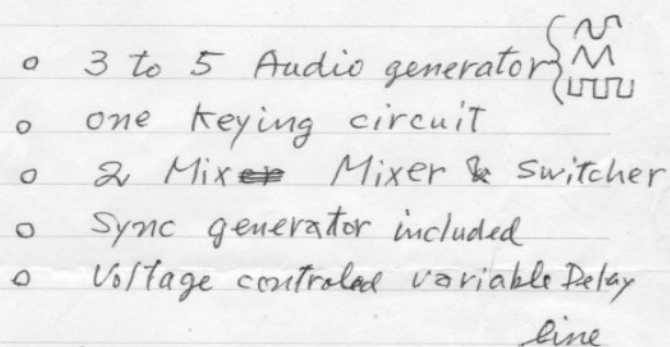 o 3 to 5 Audio generator
o one Keying circuit
o 2 Mixer Mixer & Switcher
o Sync generator included
o Voltage controled variable Delay
line